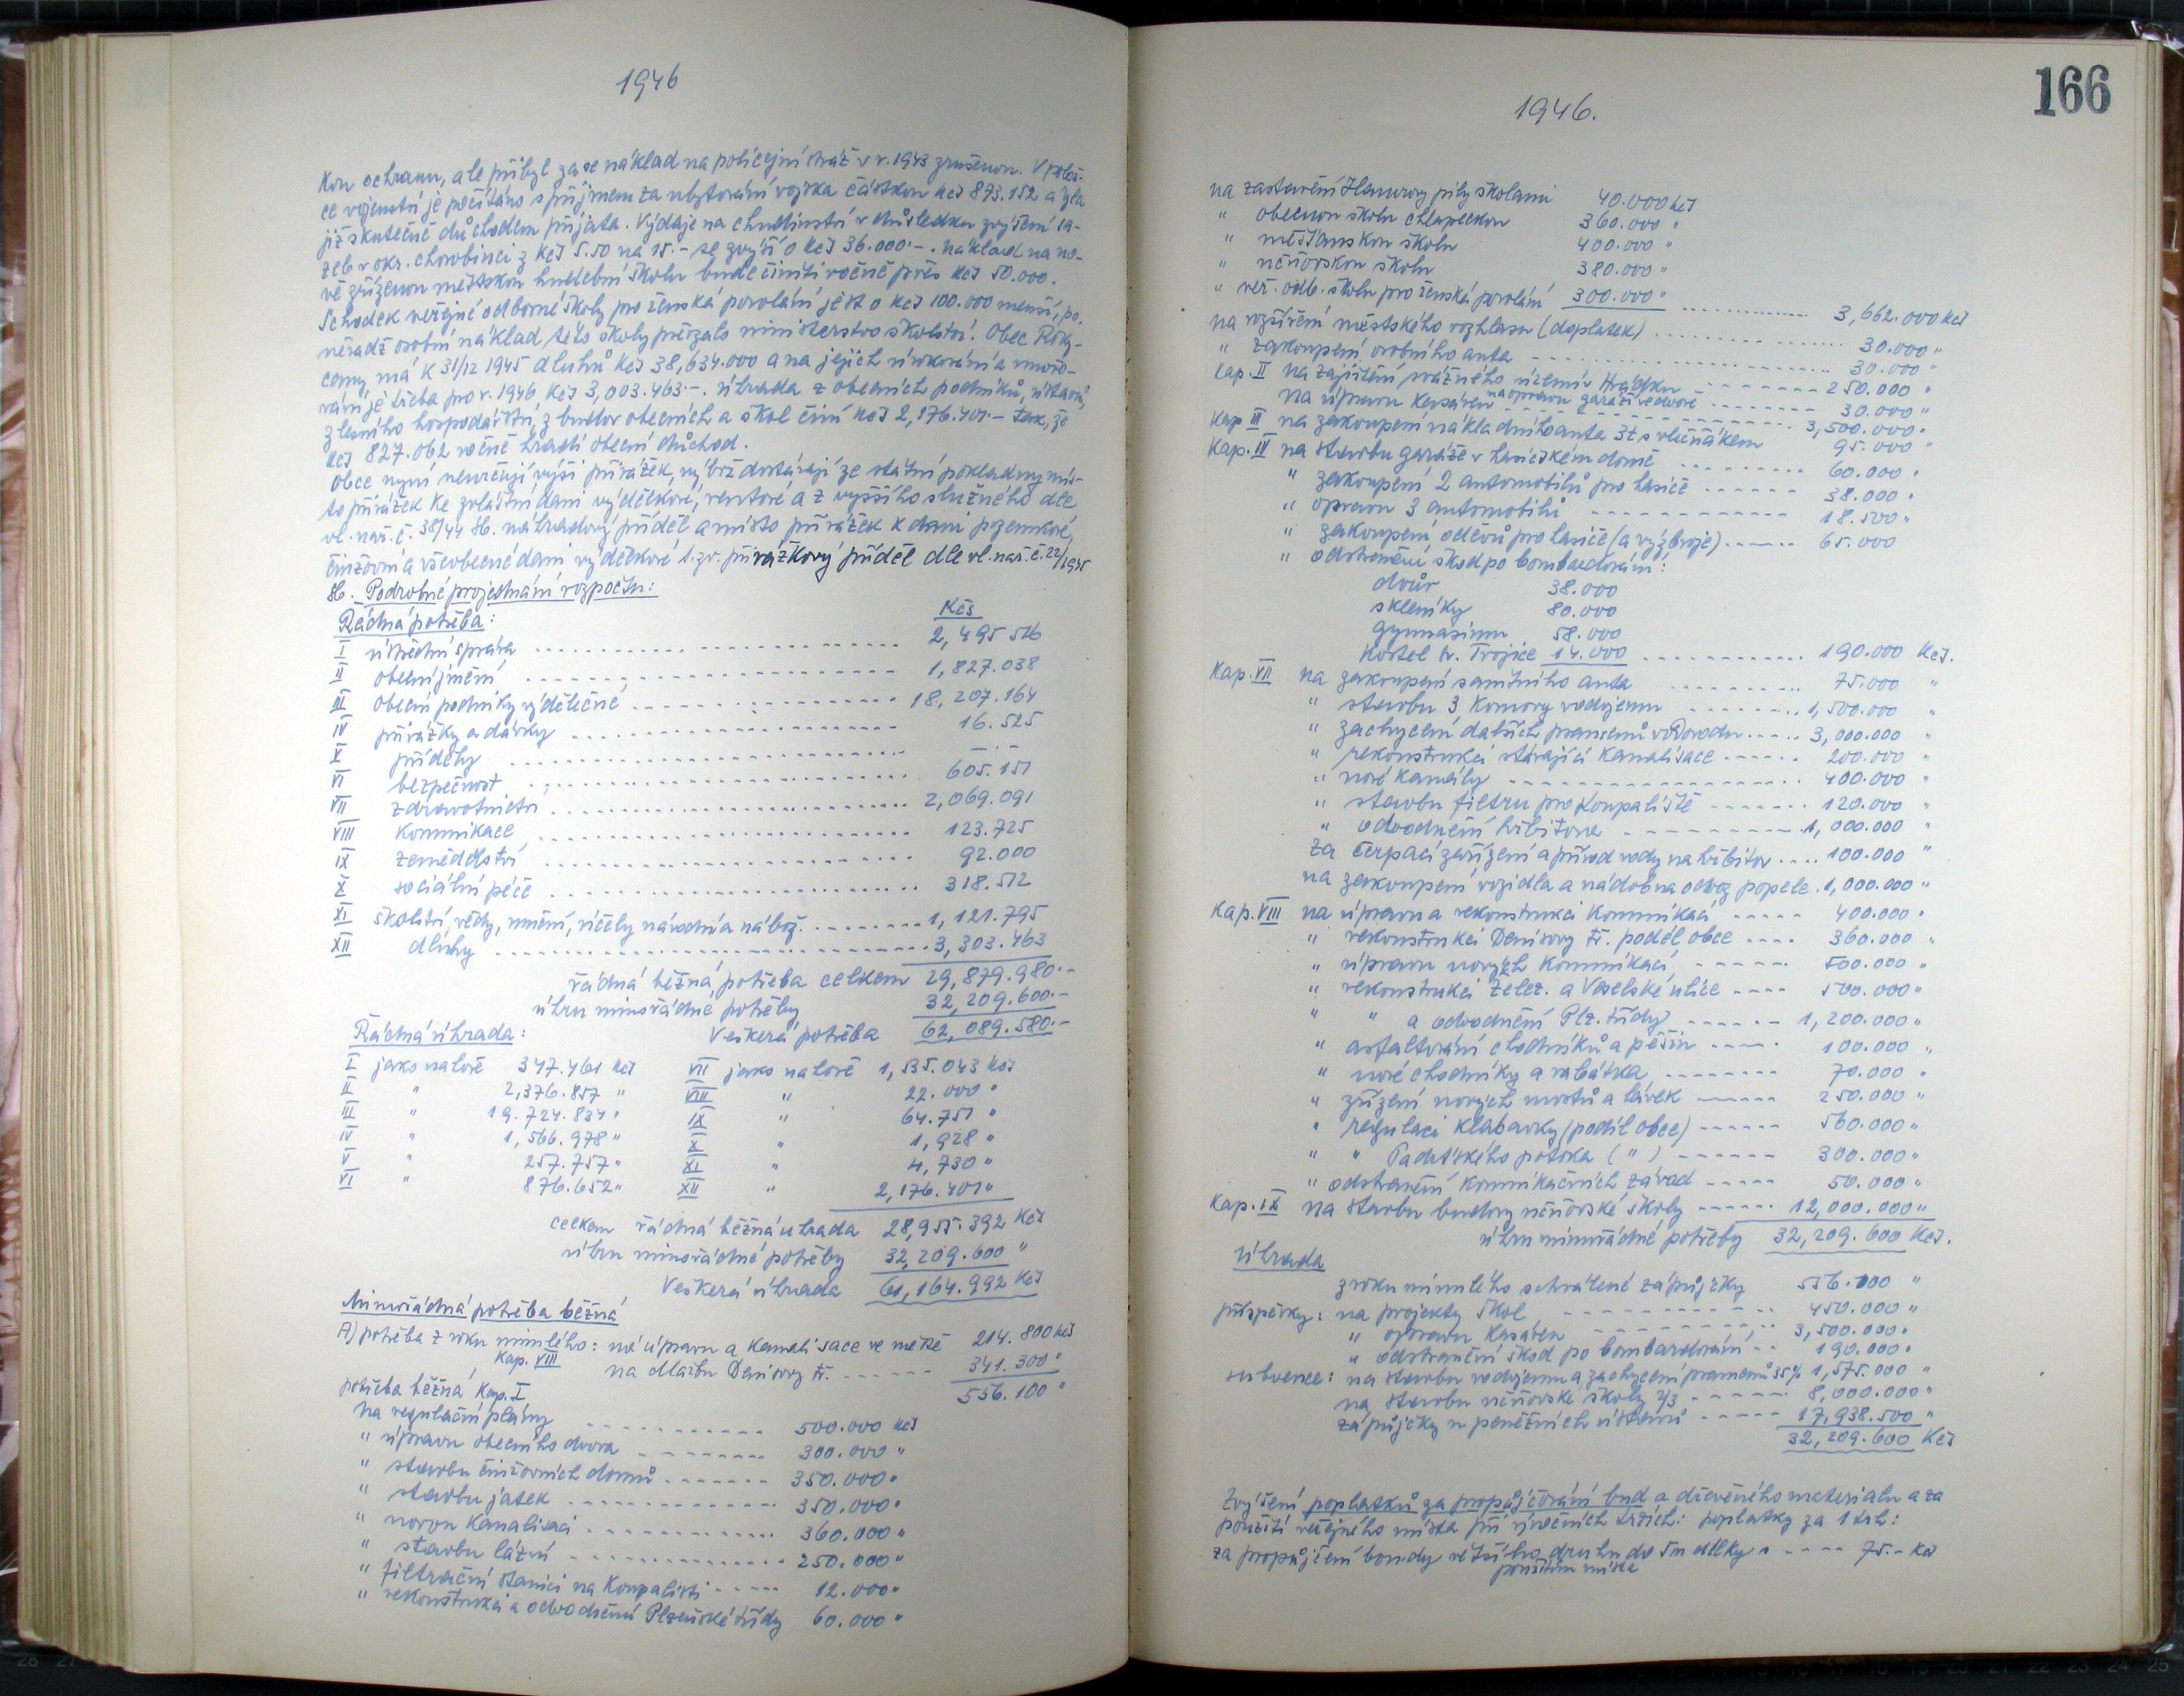 1946
kou ochranu, ale přibyl zase náklad na policejní stráž v r. 1943 zrušenou. V polož-
ce vojenství je počítáno s příjmem za ubytování vojska částkou Kčs 873.152 a byla
již skutečně důchodem přijata. Výdaje na chudinství v důsledku zvýšení sa-
zeb v okr. chorobinci z Kčs 5.50 na 15.- se zvýší o Kčs 36.000.-. náklad na no-
vě zřízenou městskou hudební školu bude činiti ročně přes Kčs 50.000.
Schodek veřejné odborné školy pro ženská povolání jest o Kčs 100.000 menší, po-
něvadž osobní náklad této školy převzalo ministerstvo školství. Obec Roky-
cany má k 31/12 1945 dluhů Kčs 38,634.000 a na jejich úrokování a umoř-
ování je třeba pro r. 1946 Kčs 3,003.463.-. úhrada z obecních podniků, ústavů,
z lesního hospodářství, z budov obecních a škol činí Kčs 2,176.401.- tak, že
Kčs 827.062 ročně hradí obecní důchod.
Obce nyní neurčují výši přirážek, nýbrž dostávají ze státní pokladny mís-
to přirážek ke zvláštní dani výdělkové, rentové a z vyššího služného dle
vl. nař. č. 38/44 Sb. náhradový příděl a místo přirážek k dani pozemkové,
činžovní a všeobecné dani výdělkové t. zv. přirážkový příděl dle vl. nař. č. 22/1945
Sb. - Podrobné projednání rozpočtu:
Řádná potřeba: Kčs
I ústřední správa 2,495 516
II obecní jmění 1,827.038
III obecní podniky výdělečné 18,207.164
IV přirážky a dávky 16.525
V příděly -.-
VI bezpečnost 605.151
VII zdravotnictví 2,069.091
VIII komunikace 123.725
IX zemědělství 92.000
X sociální péče 318.512
XI školství, vědy, umění, účely národní a nábož. 1,121.795
XII dluhy 3,303.463
řádná běžná potřeba celkem 29,879.980.-
úhrn mimořádné potřeby 32,209.600.-
Veškerá potřeba 62,089.580.-
Řádná úhrada:
I jako nahoře 347.461 Kčs VII jako nahoře 1,535.043 Kčs
II " 2,376.857 " VIII " 22.000 "
III " 19.724.834 " IX " 64.751 "
IV " 1,566.978 " X " 1,928 "
V " 257.757 " XI " 4,730 "
VI " 876.652 " XII " 2,176.401 "
celkem řádná běžná úhrada 28,955.392 Kčs
úhrn mimořádné potřeby 32,209.600 "
Veškerá úhrada 61,164.992 Kčs
Mimořádná potřeba běžná
A) potřeba z roku minulého: na úpravu a kanalisace ve městě 214.800 Kčs
Kap. VIII na dlažbu Denisovy tř. 341.300 "
556.100 "
potřeba běžná Kap. I
Na regulační plány 500.000 Kčs
" úpravu obecního dvora 300.000 "
" stavbu činžovních domů 350.000 "
" stavbu jatek 350.000 "
" novou kanalisaci 360.000 "
" stavbu lázní 250.000 "
" filtrační stanici na koupališti 12.000 "
" rekonstrukci a odvodnění Plzeňské třídy 60.000 "
166
1946.
na zastavění Hamrovy pily školami 40.000 Kčs
" obecnou školu chlapeckou 360.000 "
" měšťanskou školu 400.000 "
" učňovskou školu 380.000 "
" veř. odb. školu pro ženská povolání 300.000 " 3,662.000 Kčs
na rozšíření městského rozhlasu (doplatek) 30.000 "
" zakoupení osobního auta 30.000 "
Kap. II na zajištění svážného území v Hrádku 250.000 "
na opravu garáží ve dvoře 30.000 "
na úpravu kasáren 3,500.000 "
Kap III na zakoupení nákladního auta 3t s vlečňákem 95.000 "
Kap. IV na stavbu garáže v hasičském domě 60.000 "
" zakoupení 2 automobilů pro hasiče 38.000 "
" opravu 3 automobilů 18.500 "
" zakoupení oděvů pro hasiče (a výzbroje) 65.000
" odstranění škod po bombardování:
dvůr 38.000
skleníky 80.000
gymnasium 58.000
kostel sv. Trojice 14.000 190.000 Kčs.
Kap. VII na zakoupení sanitního auta 75.000 "
" stavbu 3 komory vodojemu 1,500.000 "
" zachycení dalších pramenů v Borovdu 3,000.000 "
" rekonstrukci stávající kanalisace 200.000 "
" nové kanály 400.000 "
" stavbu filtru pro koupaliště 120.000 "
" odvodnění hřbitova 1,000.000 "
za čerpací zařízení a přívod vody na hřbitov 100.000 "
na zakoupení vozidla a nádob na odvoz popele 1,000.000 "
Kap. VIII na úpravu a rekonstrukci komunikací 400.000 "
" rekonstrukci Denisovy tř. podíl obce 360.000 "
" úpravu nových komunikací 500.000 "
" rekonstrukci Želez. a Veselské ulice 500.000 "
" " a odvodnění Plz. třídy 1,200.000 "
" asfaltování chodníků a pěšin 100.000 "
" nové chodníky a rabátka 70.000 "
" zřízení nových mostů a lávek 250.000 "
" regulaci Klabavky (podíl obce) 560.000 "
" " Padrťského potoka ( " ) 300.000 "
" odstranění komunikačních závad 50.000 "
Kap. IX na stavbu budovy učňovské školy 12,000.000 "
úhrn mimořádné potřeby 32,209.600 Kčs.
Úhrada
z roku minulého schválené zápůjčky 556.100 "
příspěvky: na projekty škol 450.000 "
" opravu kasáren 3,500.000 "
" odstranění škod po bombardování 190.000 "
subvence: na stavbu vodojemu a zachycení pramenů 35% 1,575.000 "
na stavbu učňovské školy 2/3 8,000.000 "
zápůjčky u peněžních ústavů 17,938.500 "
32,209.600 Kčs
Zvýšení poplatků za propůjčování bud a dřevěného materialu a za
použití veřejného místa při výročních trzích: poplatky za 1 trh:
za propůjčení boudy většího druhu do 5m délky s 75.- Kčs
použitím místa